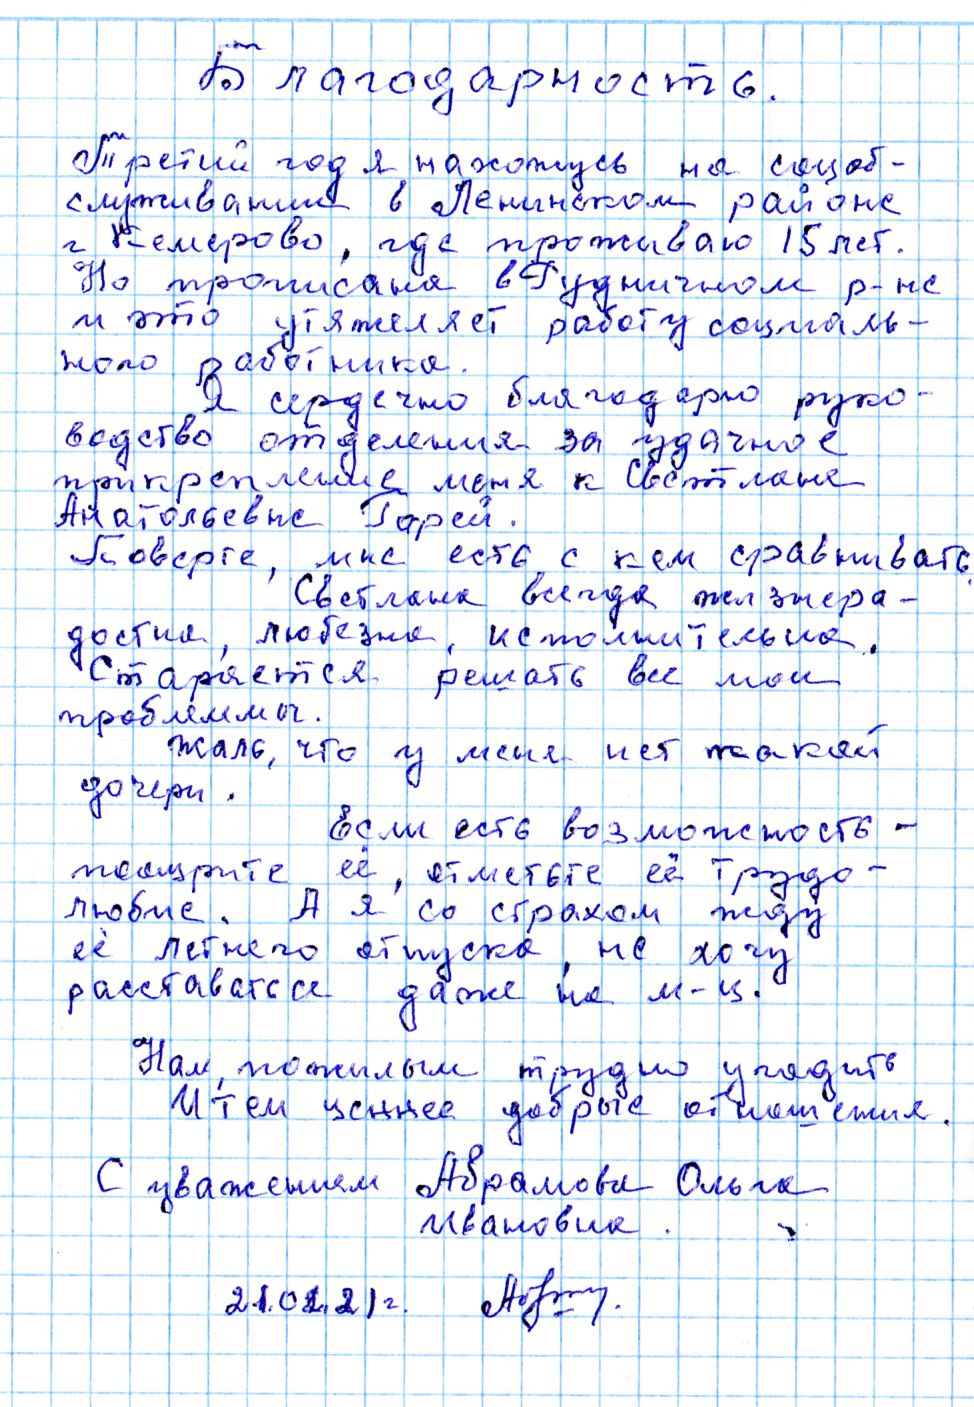 Благодарность.
Третий год я нахожусь на соцоб-
служивании в Ленинском районе
г Кемерово, где проживаю 15 лет.
Но прописана в Рудничном р-не
и это утяжеляет работу социаль-
ного работника.
Я сердечно благодарю руко-
водство отделения за удачное
прикрепление меня к Светлане
Анатольевне Горей.
Поверте, мне есть с кем сравнивать.
Светлана всегда жизнера-
достна, любезна, исполнительна.
Старается решать все мои
проблеммы.
Жаль, что у меня нет такой
дочери.
Если есть возможность -
поощрите её, отметьте её трудо-
любие. А я со страхом жду
её летнего отпуска, не хочу
расставаться даже на м-ц.
Нам, пожилым трудно угодить
И тем ценнее добрые отношения.
С уважением Абрамова Ольга
Ивановна.
21.01.21г.